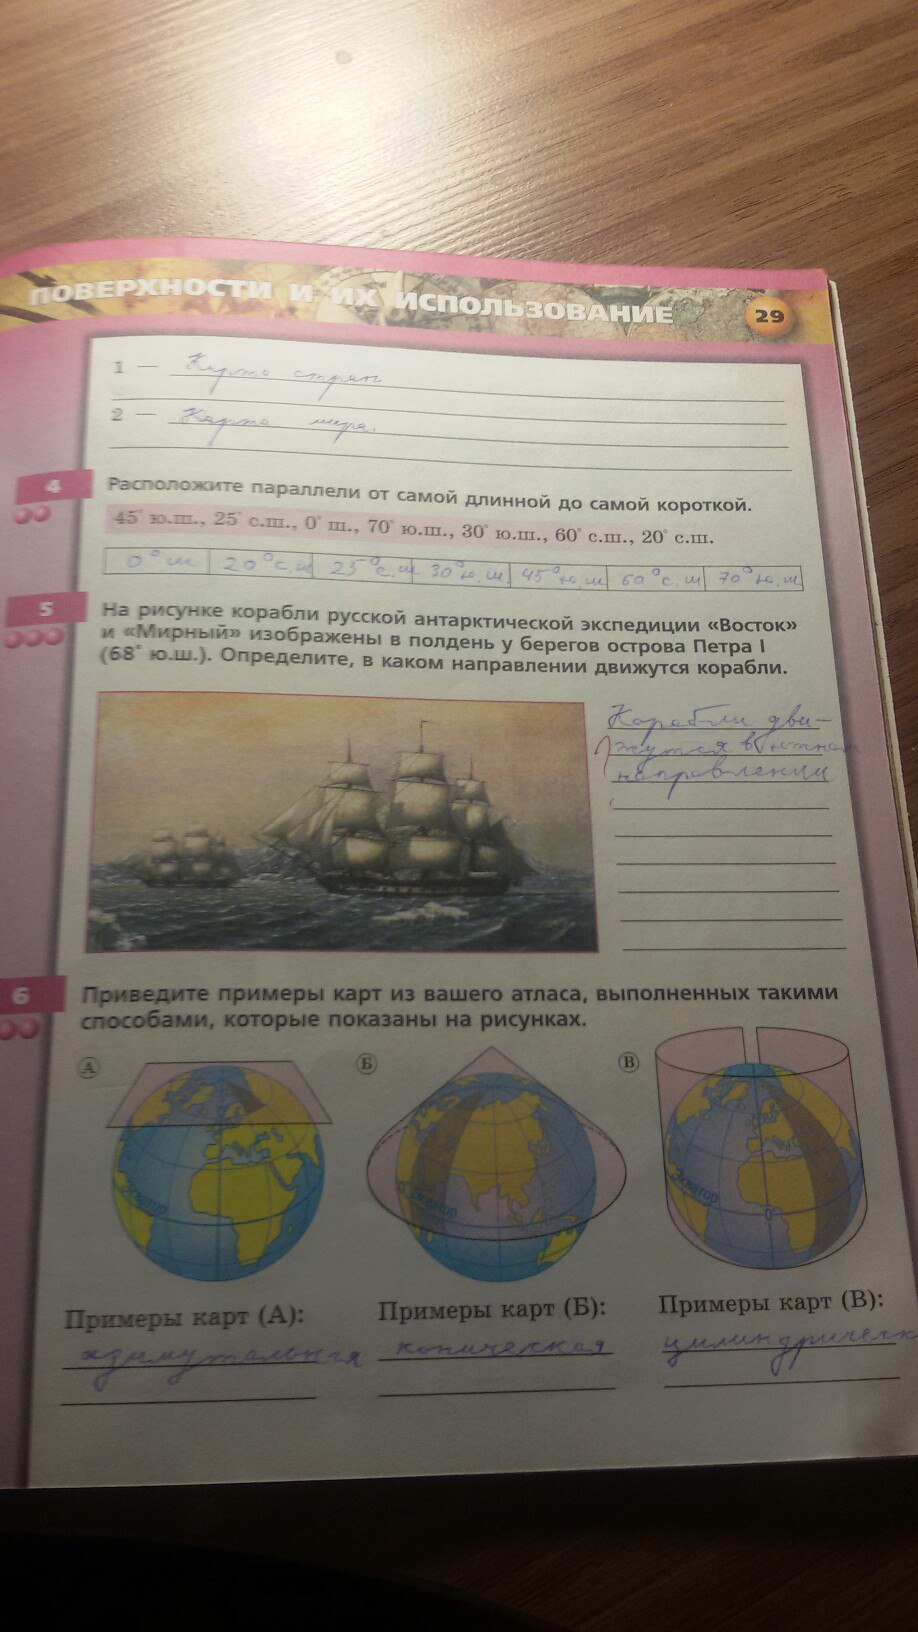 ПОВЕРХНОСТИ И ИХ ИСПОЛЬЗОВАНИЕ
29
1 — Карта стран
2 — Карта мира.
4
Расположите параллели от самой длинной до самой короткой.
45° ю.ш., 25° с.ш., 0° ш., 70° ю.ш., 30° ю.ш., 60° с.ш., 20° с.ш.
0° ш 20° с.ш 25° с.ш 30° ю.ш 45° ю.ш 60° с.ш 70° ю.ш
5
На рисунке корабли русской антарктической экспедиции «Восток»
и «Мирный» изображены в полдень у берегов острова Петра I
(68° ю.ш.). Определите, в каком направлении движутся корабли.
Корабли дви-
жутся в южном
направлении
6
Приведите примеры карт из вашего атласа, выполненных такими
способами, которые показаны на рисунках.
А
Б
В
Экватор
0° Экватор
Экватор
0°
Примеры карт (А):
азимутальная
Примеры карт (Б):
коническая
Примеры карт (В):
цилиндрическ